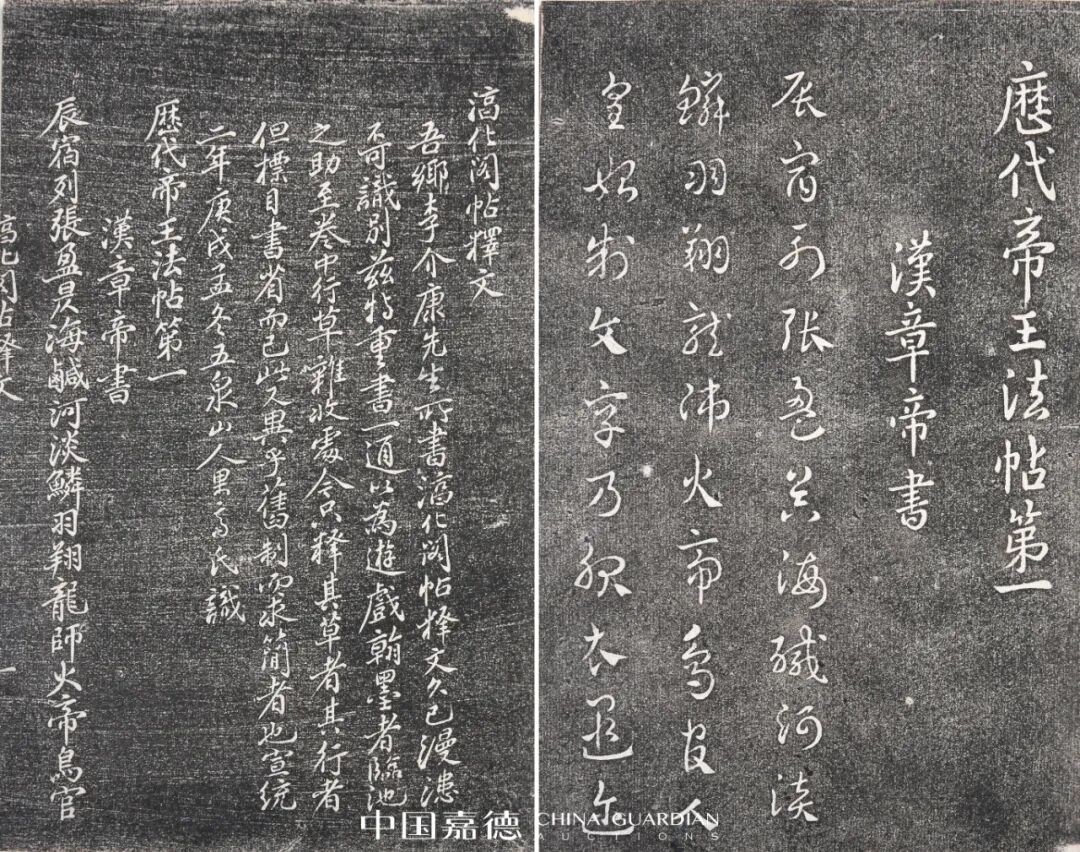 歷代帝王法帖第一
漢章帝書
辰宿列張盈昃海鹹河淡
鱗羽翔龍師火帝鳥官人
皇始制文字乃服衣遐迩
淳化閣帖釋文
吾鄉李介康先生所書淳化閣帖釋文久已漫漶
不可識別茲特重書一通以為遊戲翰墨者臨池
之助至卷中行草雜收處今只釋其草者其行者
但標目書省而已此又異乎舊制而求簡者也宣統
二年庚戌孟冬五泉山人果齋氏識
歷代帝王法帖第一
漢章帝書
辰宿列張盈昃海鹹河淡鱗羽翔龍師火帝鳥官
淳化閣帖釋文 一
中国嘉德 CHINA GUARDIAN
AUCTIONS